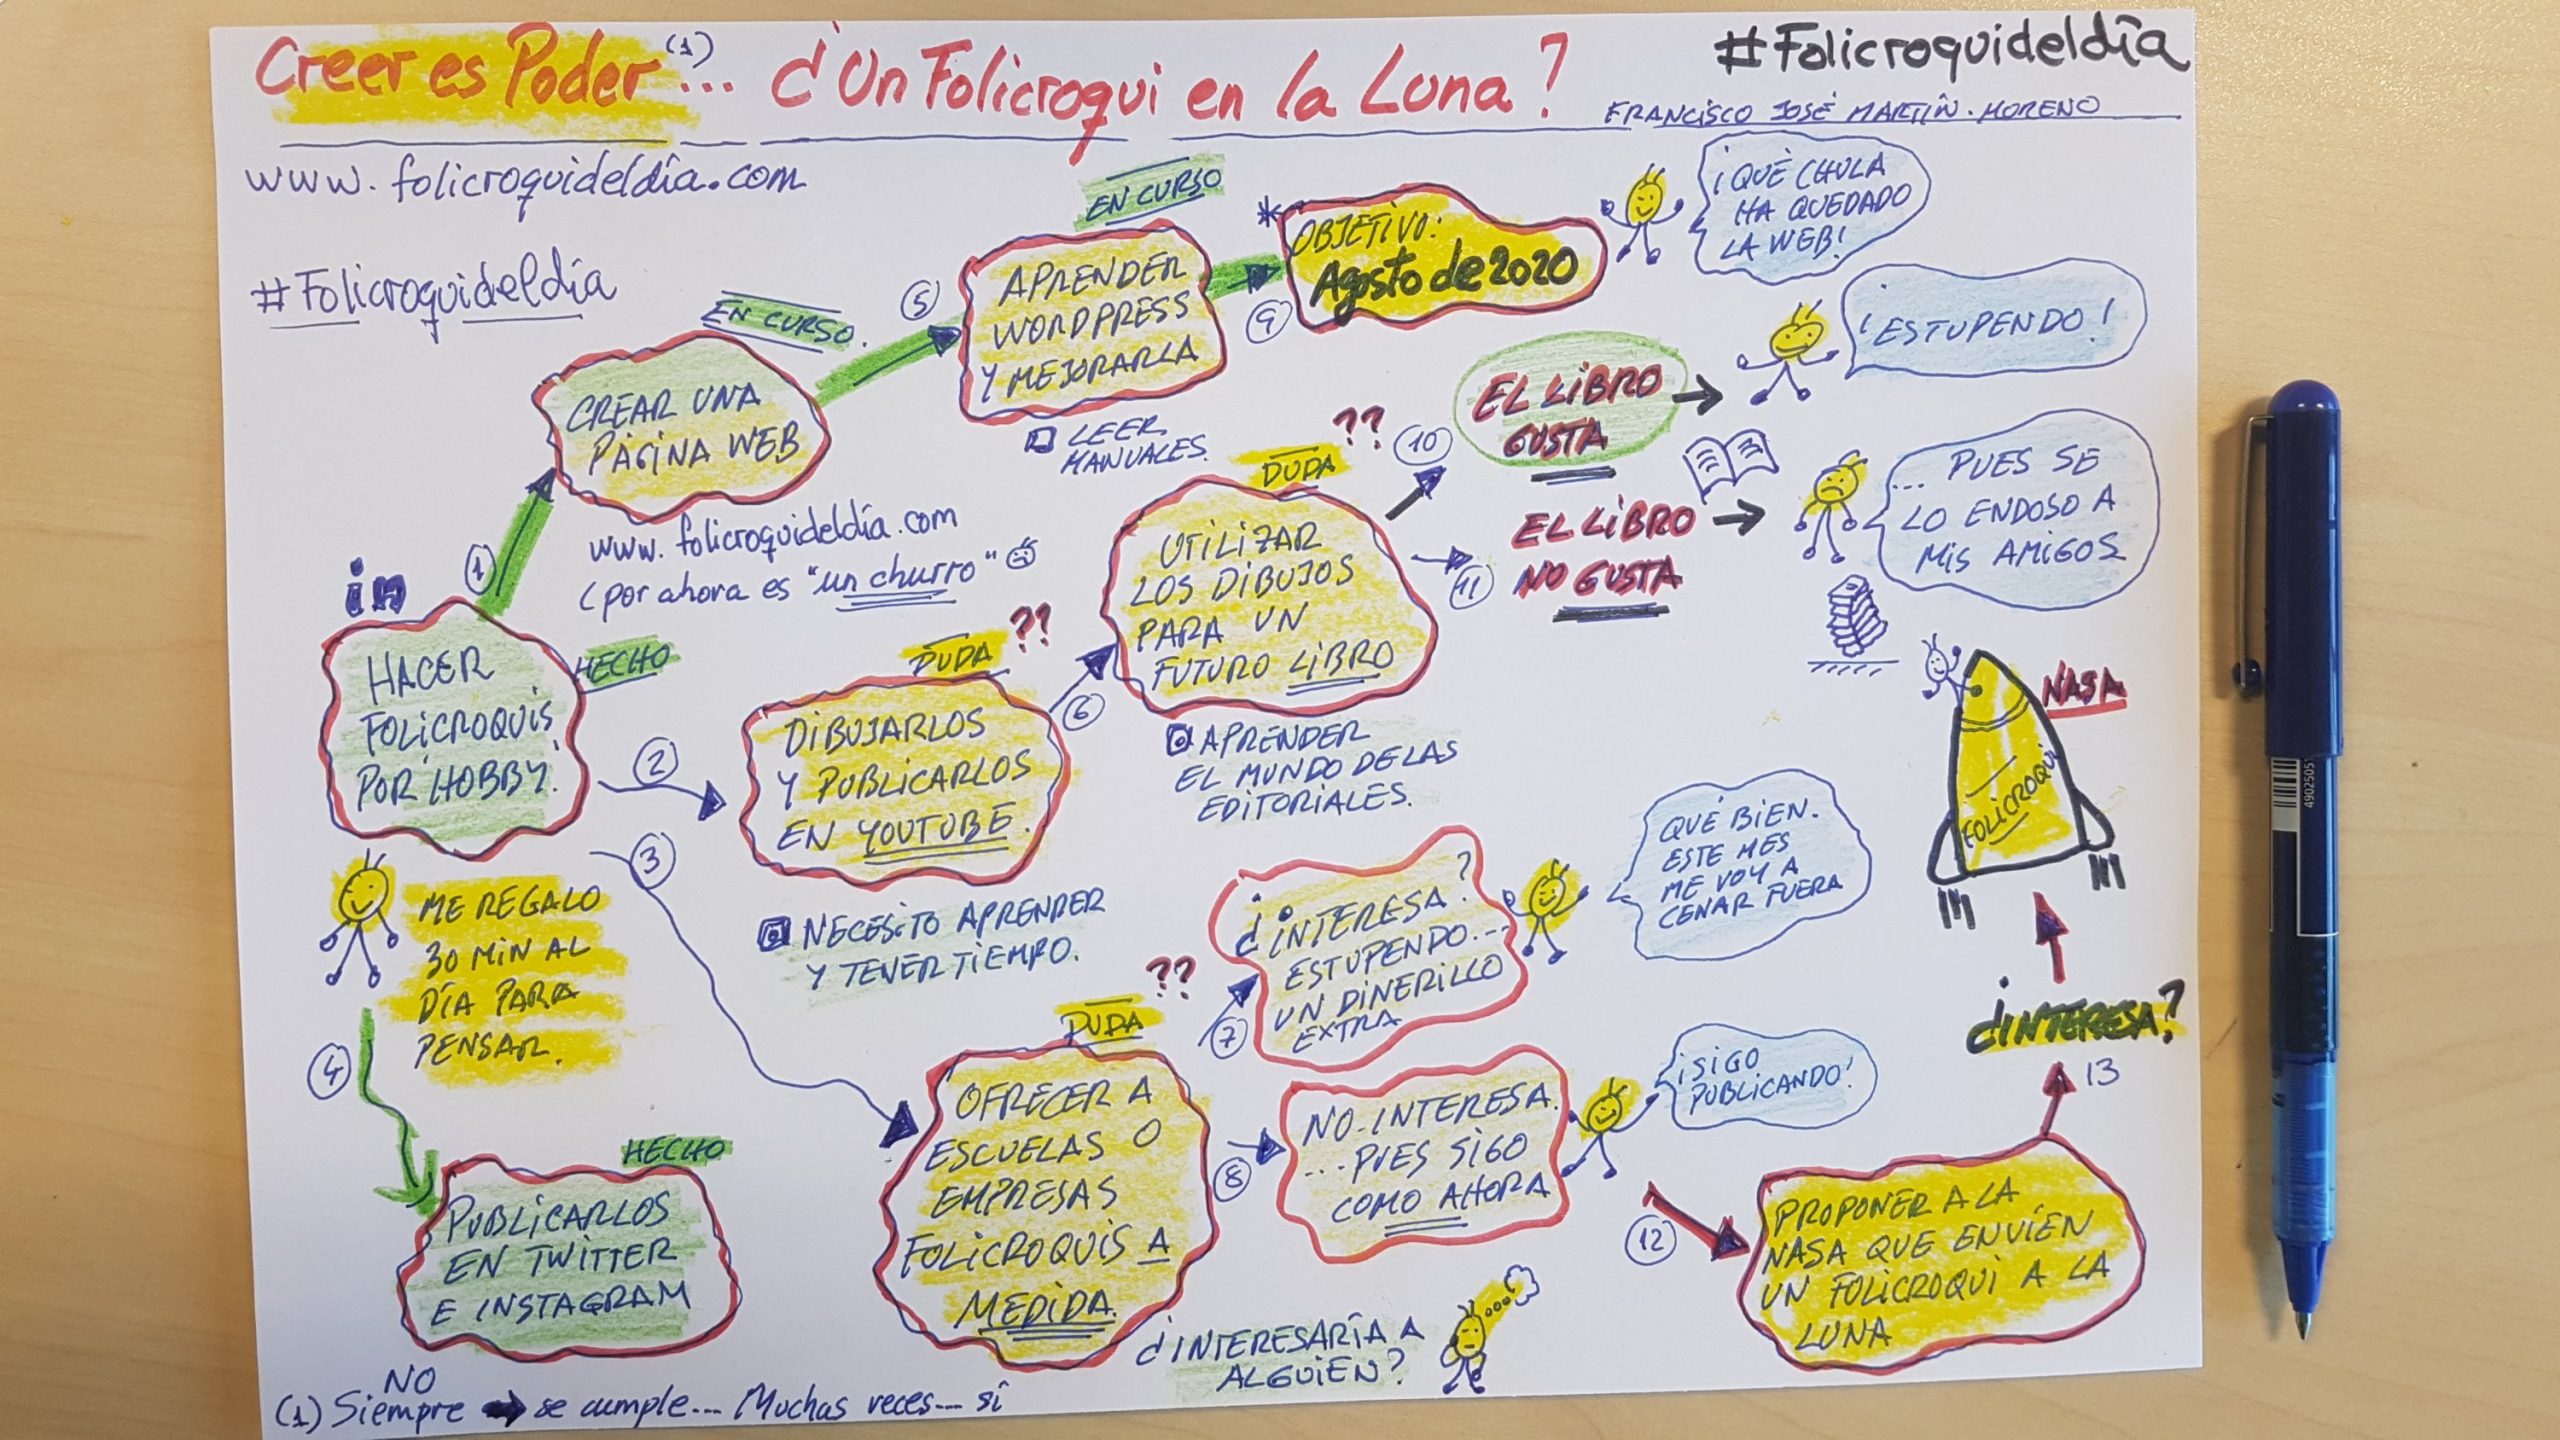 Creer es Poder (1)... ¿Un Folicroqui en la Luna?
#Folicroquideldía
FRANCISCO JOSÉ MARTÍN-MORENO
www.folicroquideldía.com
#Folicroquideldía
in
HACER
FOLICROQUIS
POR HOBBY.
HECHO
ME REGALO
30 MIN AL
DÍA PARA
PENSAR.
1
EN CURSO.
CREAR UNA
PÁGINA WEB
www.folicroquideldía.com
(por ahora es "un churro"
5
EN CURSO
APRENDER
WORDPRESS
Y MEJORARLA
LEER
MANUALES.
9
*OBJETIVO:
Agosto de 2020
¡QUÉ CHULA
HA QUEDADO
LA WEB!
2
DUDA ??
DIBUJARLOS
Y PUBLICARLOS
EN YOUTUBE.
NECESITO APRENDER
Y TENER TIEMPO.
6
DUDA ??
UTILIZAR
LOS DIBUJOS
PARA UN
FUTURO LIBRO
APRENDER
EL MUNDO DE LAS
EDITORIALES.
10
EL LIBRO
GUSTA
¡ESTUPENDO!
11
EL LIBRO
NO GUSTA
...PUES SE
LO ENDOSO A
MIS AMIGOS
3
DUDA ??
OFRECER A
ESCUELAS O
EMPRESAS
FOLICROQUIS A
MEDIDA.
7
¿INTERESA?
ESTUPENDO...
UN DINERILLO
EXTRA
QUÉ BIEN.
ESTE MES
ME VOY A
CENAR FUERA
8
NO INTERESA.
...PUES SIGO
COMO AHORA
¡SIGO
PUBLICANDO!
¿INTERESARÍA A
ALGUIEN?
4
HECHO
PUBLICARLOS
EN TWITTER
E INSTAGRAM
12
PROPONER A LA
NASA QUE ENVÍEN
UN FOLICROQUI A LA
LUNA
13
¿INTERESA?
NASA
FOLICROQUI
NO
(1) Siempre se cumple... Muchas veces... sí
4902505